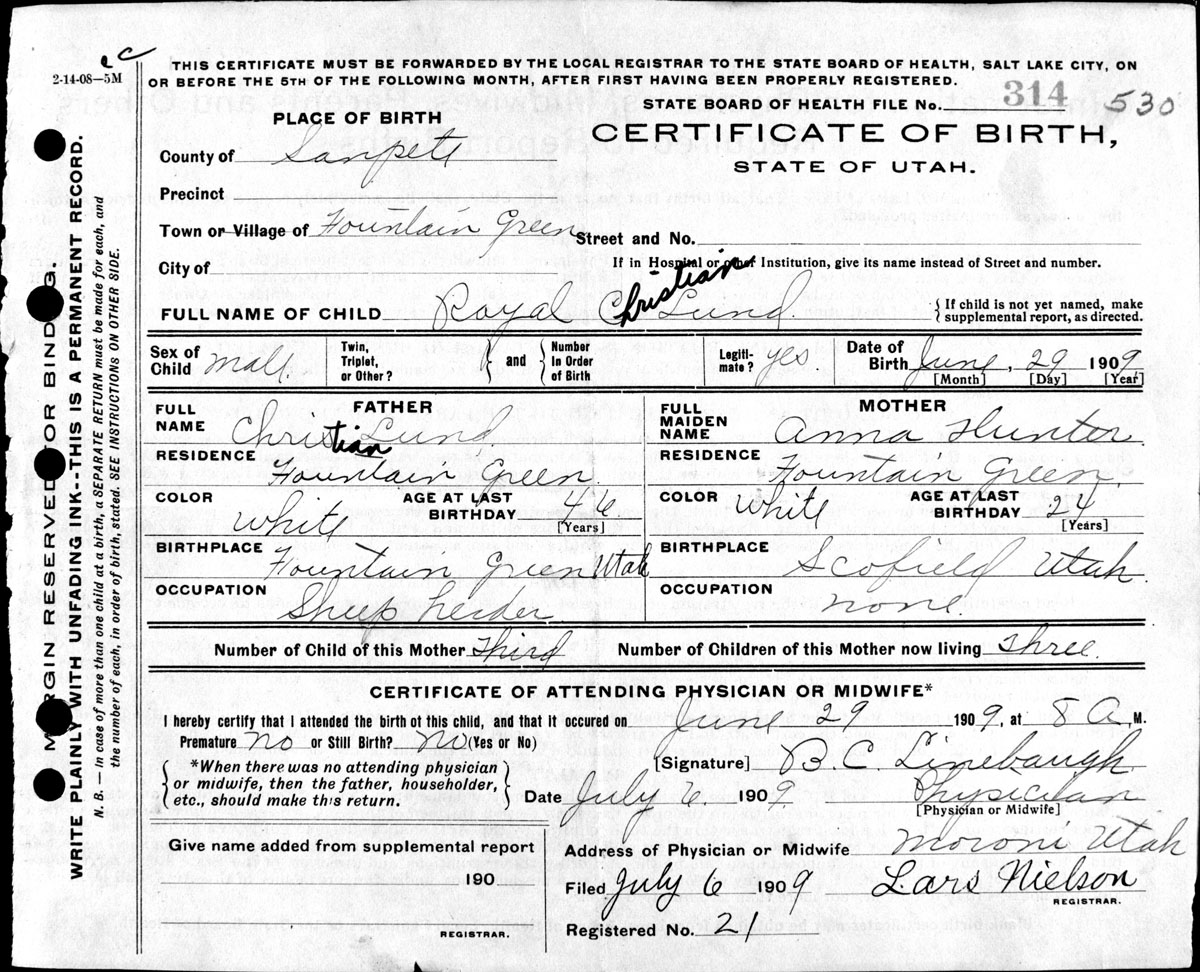 2-14-08—5M
THIS CERTIFICATE MUST BE FORWARDED BY THE LOCAL REGISTRAR TO THE STATE BOARD OF HEALTH, SALT LAKE CITY, ON
OR BEFORE THE 5TH OF THE FOLLOWING MONTH, AFTER FIRST HAVING BEEN PROPERLY REGISTERED.
STATE BOARD OF HEALTH FILE No. 314 530
PLACE OF BIRTH
CERTIFICATE OF BIRTH,
STATE OF UTAH.
County of Sanpete
Precinct
Town or Village of Fountain Green Street and No.
City of If in Hospital or other Institution, give its name instead of Street and number.
FULL NAME OF CHILD Royal Christian Lund. { If child is not yet named, make
supplemental report, as directed.
Sex of Child Male. Twin, Triplet, or Other? } and { Number In Order of Birth Legiti- mate? yes Date of Birth June, 29 1909
[Month] [Day] [Year]
FATHER MOTHER
FULL NAME Christian Lund. FULL MAIDEN NAME Anna Hunter
RESIDENCE Fountain Green. RESIDENCE Fountain Green.
COLOR White AGE AT LAST BIRTHDAY 46 [Years] COLOR White AGE AT LAST BIRTHDAY 24 [Years]
BIRTHPLACE Fountain Green Utah BIRTHPLACE Scofield Utah.
OCCUPATION Sheep herder. OCCUPATION none.
Number of Child of this Mother Third Number of Children of this Mother now living Three.
CERTIFICATE OF ATTENDING PHYSICIAN OR MIDWIFE*
I hereby certify that I attended the birth of this child, and that it occured on June 29 1909, at 8 A. M.
Premature no or Still Birth? no (Yes or No)
{ *When there was no attending physician
or midwife, then the father, householder,
etc., should make this return. }
[Signature] B. C. Linebaugh
Date July 6. 1909. Physician
[Physician or Midwife]
Give name added from supplemental report
190
REGISTRAR.
Address of Physician or Midwife Moroni Utah
Filed July 6 1909 Lars Nielson
REGISTRAR.
Registered No. 21
MARGIN RESERVED FOR BINDING.
WRITE PLAINLY WITH UNFADING INK--THIS IS A PERMANENT RECORD.
N. B.—In case of more than one child at a birth, a SEPARATE RETURN must be made for each, and
the number of each, in order of birth, stated. SEE INSTRUCTIONS ON OTHER SIDE.